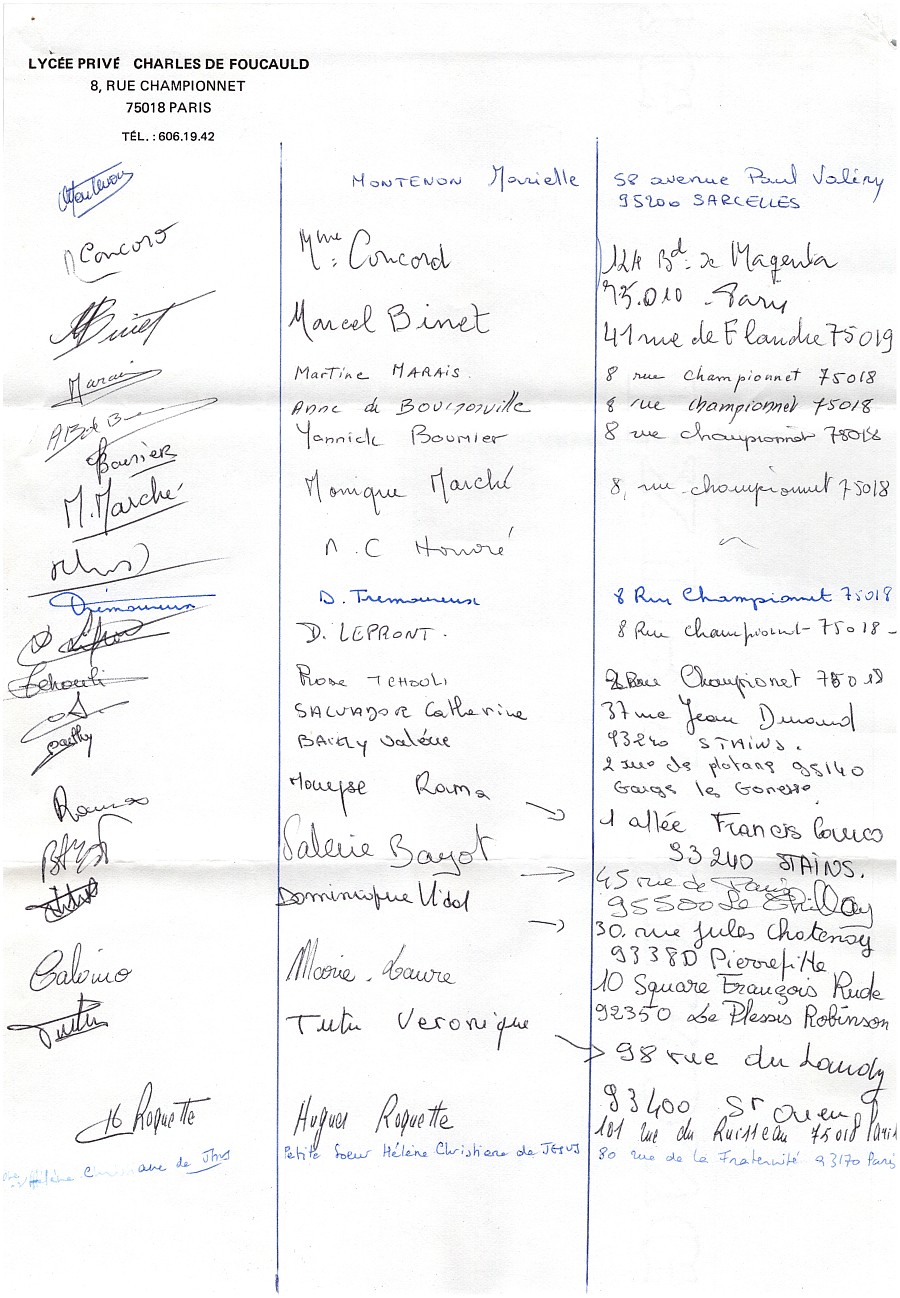 LYCÉE PRIVÉ CHARLES DE FOUCAULD
8, RUE CHAMPIONNET
75018 PARIS
TÉL. : 606.19.42
Montenon MONTENON Marielle 58 avenue Paul Valéry
95200 SARCELLES
Concord Mme Concord 124 Bd de Magenta
75.010 Paris
Binet Marcel Binet 41 rue de Flandre 75019
Marais Martine MARAIS. 8 rue championnet 75018
Anne de BOURNONVILLE 8 rue championnet 75018
Boumier Yannick Boumier 8 rue championnet 75018
M. Marché Monique Marché 8, rue championnet 75018
Π.C Honoré
Trémoureux D. Tremoureux 8 Rue Championnet 75018
D. LEPRONT. 8 Rue championnet 75018 -
Tchouli Rose TCHOULI 8 Rue Championet 75018
SALVADOR Catherine 37 rue Jean Durand
93240 STAINS.
Bailly BAILLY Valérie 2 rue des platane 95140
Garges les Gonesse
Rama Rama
1 allée Francis
93240 STAINS.
Bayot Valérie Bayot
45 rue de Paris
95500 Le Thillay
Vidal Dominique Vidal
30. rue Jules Chatenay
93380 Pierrefitte
Marie-Laure 10 Square François Rude
92350 Le Plessis Robinson
Tutu Tutu Veronique
98 rue du Landy
93400 St Ouen
H Roquette Hugues Roquette 101 rue du Ruisseau 75018 Paris
Hélène Christiane de Jésus Petite Soeur Hélène Christiane de JESUS 80 rue de la Fraternité 93170 Paris